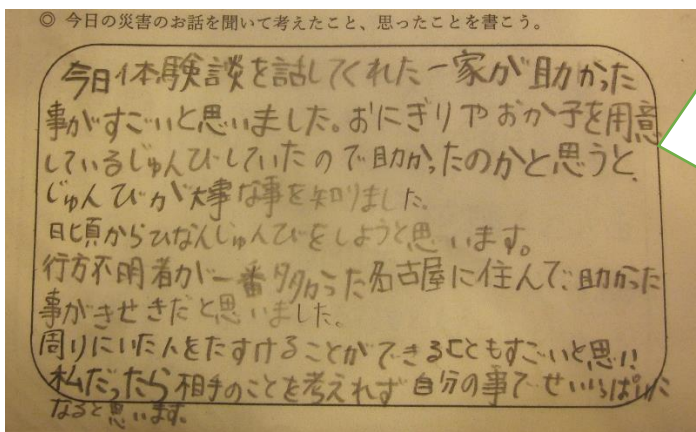 ◎ 今日の災害のお話を聞いて考えたこと、思ったことを書こう。
今日体験談を話してくれた一家が助かった
事がすごいと思いました。おにぎりやおか子を用意
しているじゅんびしていたので助かったのかと思うと、
じゅんびが大事な事を知りました。
日頃からひなんじゅんびをしようと思います。
行方不明者が一番多かった名古屋に住んで、助かった
事がきせきだと思いました。
周りにいた人をたすけることができることもすごいと思い
私だったら相手のことを考えれず自分の事でせいいっぱいに
なると思います。